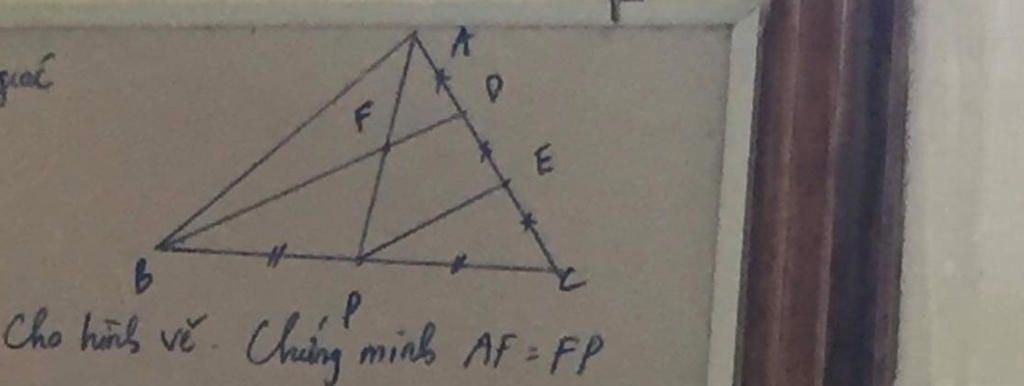 A
D
F
E
B
C
P
Cho hình vẽ. Chứng minh AF = FP